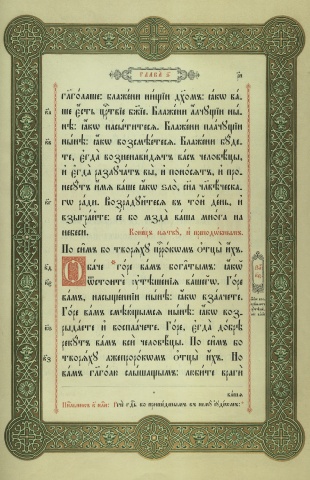 глава ѕ҃
гл҃аголаше: Блажени нищїи дх҃омъ: ꙗкѡ ва-
ше є҆сть црⷭ҇твїе бж҃їе. Блажени а҆лчꙋщїи ны-
нѣ: ꙗкѡ насытитесѧ. Блажени плачꙋщїи
нынѣ: ꙗкѡ возсмѣетесѧ. Блажени бꙋде-
те, є҆гда возненавидѧтъ васъ человѣцы,
и҆ є҆гда разлꙋчатъ вы, и҆ поносѧтъ, и҆ про-
несꙋтъ и҆мѧ ваше ꙗкѡ ѕло, сн҃а человѣческа-
гѡ ради. Возрадꙋйтесѧ въ той день, и҆
взыграйте: се бо мзда ваша многа на
небеси. Конецъ пѧткꙋ, и҆ преподѡбнымъ.
По симъ бо творѧхꙋ пророкѡмъ ѻ҆тцы и҆хъ.
Ѻ҆баче горе вамъ богатымъ: ꙗкѡ
ѿстоите ᲂу҆тѣшенїѧ вашегѡ. Горе
вамъ, насыщеннїи нынѣ: ꙗкѡ взалчете.
Горе вамъ смѣющымсѧ нынѣ: ꙗкѡ воз-
рыдаете и҆ восплачете. Горе, є҆гда добрѣ
рекꙋтъ вамъ вси человѣцы. По симъ бо
творѧхꙋ лжепророкѡмъ ѻ҆тцы и҆хъ. Но
вамъ гл҃аголю слышащымъ: любите враги